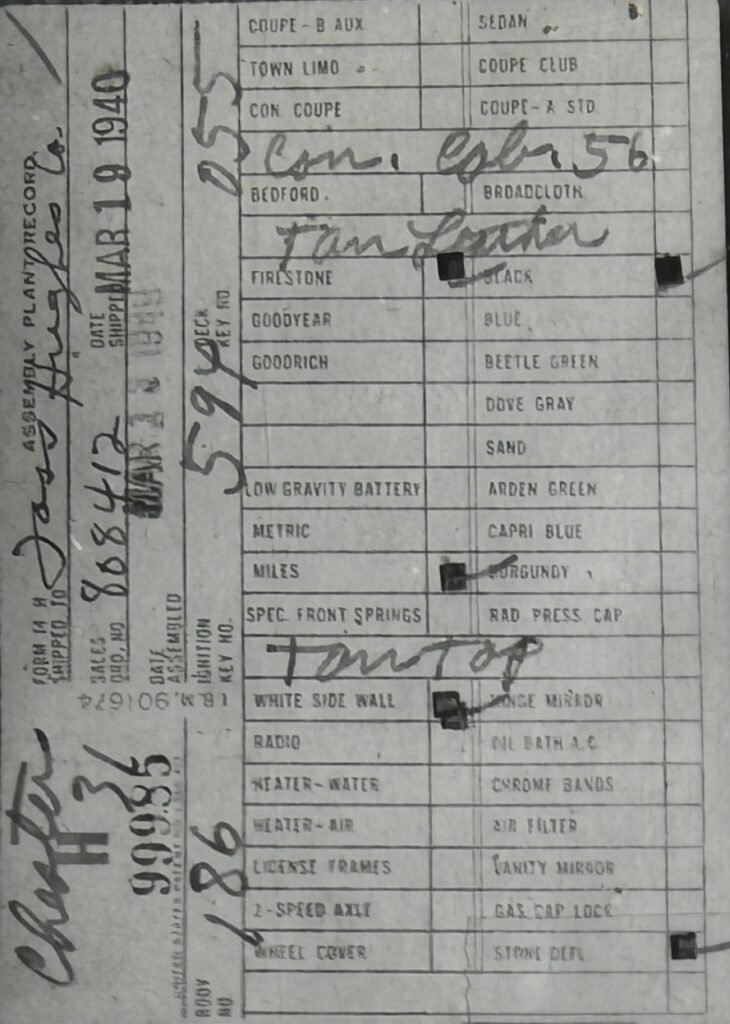 ASSEMBLY PLANT RECORD
FORM 14 H
SHIPPED TO Jass Hughes Co.
SALES ORD. NO 808412
DATE SHIPPED MAR 19 1940
DATE ASSEMBLED MAR 1940
IGNITION KEY NO. 594
DECK KEY NO. 055
I.B.M. 901674
Chester
H 36
99985
BODY NO 186
COUPE - B AUX
SEDAN
TOWN LIMO
COUPE CLUB
CON. COUPE
COUPE - A STD.
Con. Cabr. 56
BEDFORD.
BROADCLOTH
Tan Leather
FIRESTONE
BLACK
GOODYEAR
BLUE
GOODRICH
BEETLE GREEN
DOVE GRAY
SAND
LOW GRAVITY BATTERY
ARDEN GREEN
METRIC
CAPRI BLUE
MILES
BURGUNDY
SPEC. FRONT SPRINGS
RAD PRESS CAP
Tan Top
WHITE SIDE WALL
HINGE MIRROR
RADIO
OIL BATH A.C.
HEATER - WATER
CHROME BANDS
HEATER - AIR
AIR FILTER
LICENSE FRAMES
VANITY MIRROR
2 - SPEED AXLE
GAS CAP LOCK
WHEEL COVER
STONE DEFL.